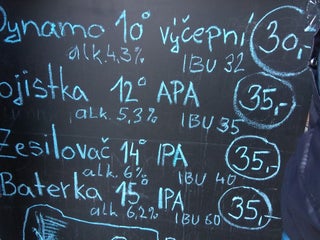 Dynamo 10° výčepní 30,-
alk. 4,3% IBU 32
ojistka 12° APA 35,-
alk. 5,3% IBU 35
Zesilovač 14° IPA 35,-
alk. 6% IBU 40
Baterka 15° IPA 35,-
alk. 6,2% IBU 60